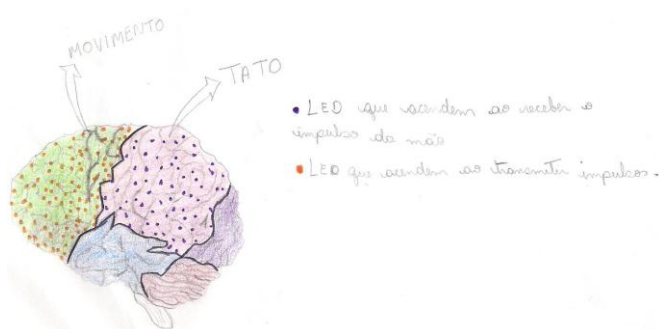 MOVIMENTO
TATO
• LED que acendem ao receber o
impulso da mão
• LED que acendem ao transmitir impulsos.